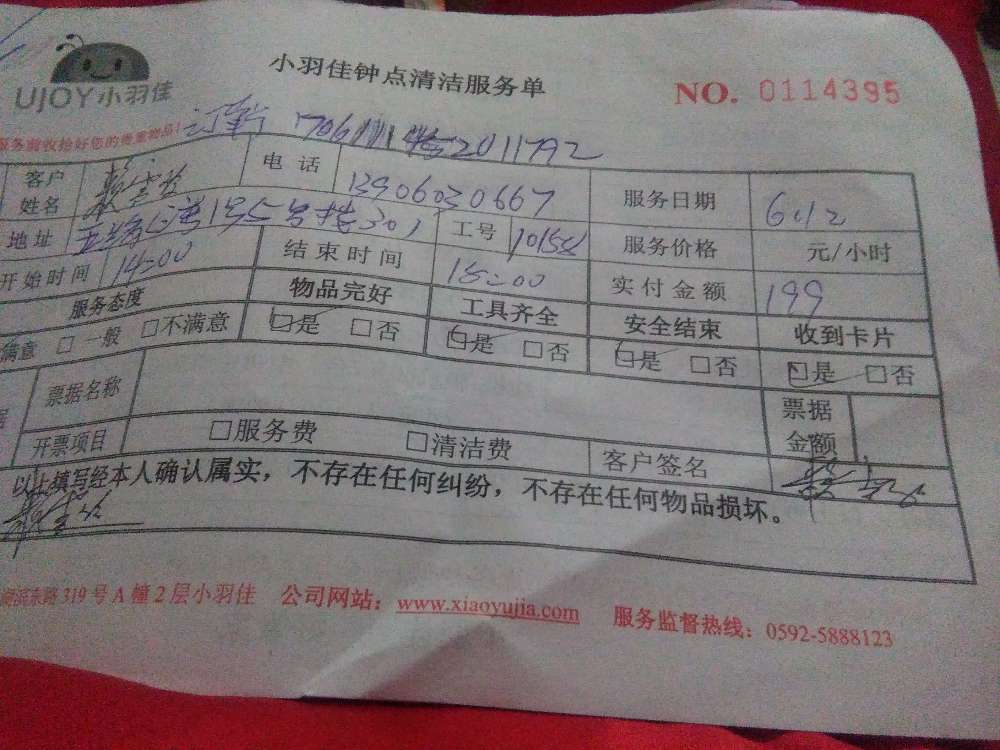 UJOY小羽佳
小羽佳钟点清洁服务单
NO. 0114395
服务前收拾好您的贵重物品!
客户姓名 电话 13906030667 服务日期 6.12
地址 1号 号楼301 工号 10158 服务价格 元/小时
开始时间 14:00 结束时间 18:00 实付金额 199
服务态度 物品完好 工具齐全 安全结束 收到卡片
满意 □ 一般 □不满意 □是 □否 □是 □否 □是 □否 □是 □否
票据名称 票据金额
开票项目 □服务费 □清洁费 客户签名
以上填写经本人确认属实，不存在任何纠纷，不存在任何物品损坏。
东路319号A幢2层小羽佳 公司网站：www.xiaoyujia.com 服务监督热线：0592-5888123